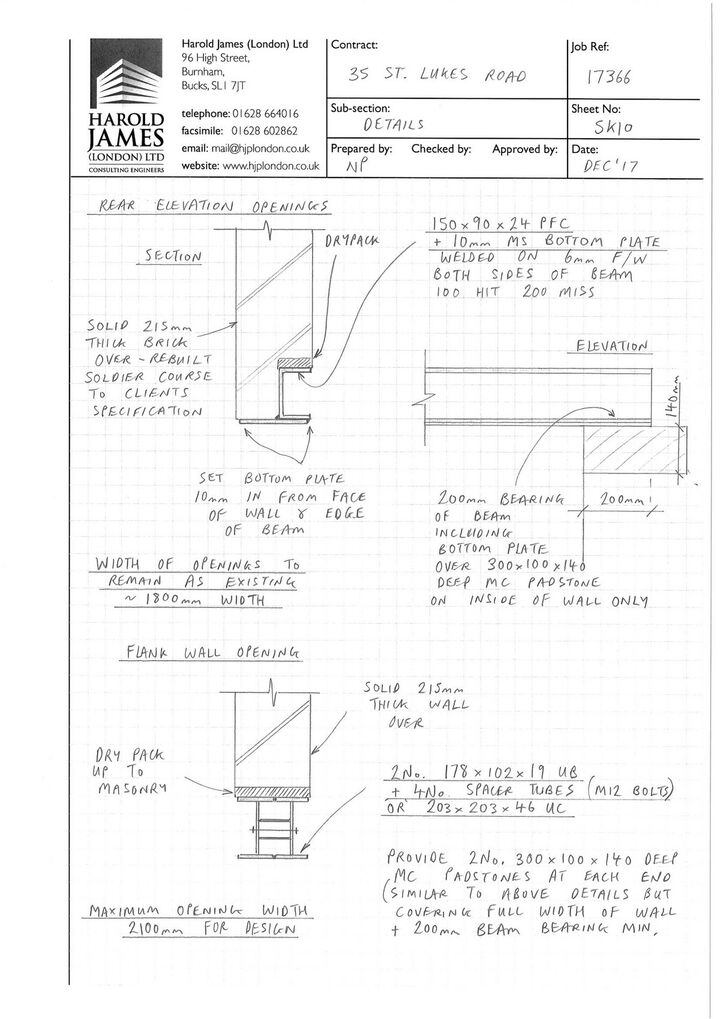 HAROLD
JAMES
(LONDON) LTD
CONSULTING ENGINEERS
Harold James (London) Ltd
96 High Street,
Burnham,
Bucks, SL1 7JT
telephone: 01628 664016
facsimile: 01628 602862
email: mail@hjplondon.co.uk
website: www.hjplondon.co.uk
Contract:
35 ST. LUKES ROAD
Job Ref:
17366
Sub-section:
DETAILS
Sheet No:
SK10
Prepared by: Checked by: Approved by:
NP
Date:
DEC '17
REAR ELEVATION OPENINGS
SECTION
DRYPACK
150 x 90 x 24 PFC
+ 10mm MS BOTTOM PLATE
WELDED ON 6mm F/W
BOTH SIDES OF BEAM
100 HIT 200 MISS
SOLID 215mm
THICK BRICK
OVER - REBUILT
SOLDIER COURSE
TO CLIENTS
SPECIFICATION
ELEVATION
140mm
SET BOTTOM PLATE
10mm IN FROM FACE
OF WALL & EDGE
OF BEAM
200mm BEARING
OF BEAM
INCLUDING
BOTTOM PLATE
OVER 300x100x140
DEEP MC PADSTONE
ON INSIDE OF WALL ONLY
200mm
WIDTH OF OPENINGS TO
REMAIN AS EXISTING
~ 1800mm WIDTH
FLANK WALL OPENING
SOLID 215mm
THICK WALL
OVER
DRY PACK
UP TO
MASONRY
2No. 178 x 102 x 19 UB
+ 4No. SPACER TUBES (M12 BOLTS)
OR 203 x 203 x 46 UC
PROVIDE 2No. 300 x 100 x 140 DEEP
MC PADSTONES AT EACH END
(SIMILAR TO ABOVE DETAILS BUT
COVERING FULL WIDTH OF WALL
+ 200mm BEAM BEARING MIN.
MAXIMUM OPENING WIDTH
2100mm FOR DESIGN